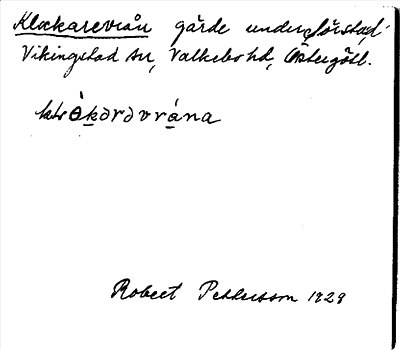 Klockarevrån gärde under Lörstad
Vikingstad sn, Valkebo hd, Östergötl.
Robert Pettersson 1929